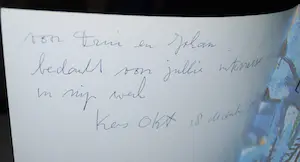 voor Trini en Johan
bedankt voor jullie interesse
in mijn werk
Kees Okx